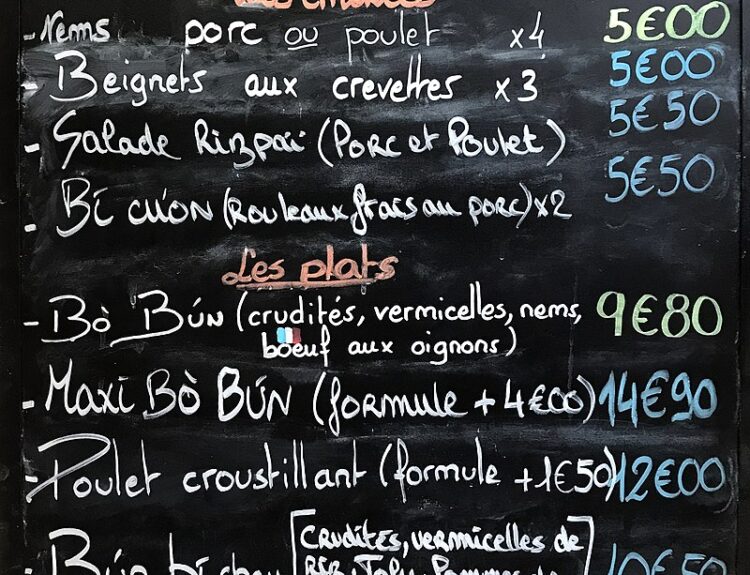 Les entrées
- Nems porc ou poulet x4 5€00
- Beignets aux crevettes x3 5€00
- Salade Rizpaï (Porc et Poulet) 5€50
- Bì cuốn (Rouleaux frais au porc) x2 5€50
Les plats
- Bò Bún (crudités, vermicelles, nems, 9€80
boeuf aux oignons)
- Maxi Bò Bún (formule + 4€00) 14€90
- Poulet croustillant (formule +1€50) 12€00
- Bún bì chay [Crudités, vermicelles de 10€50